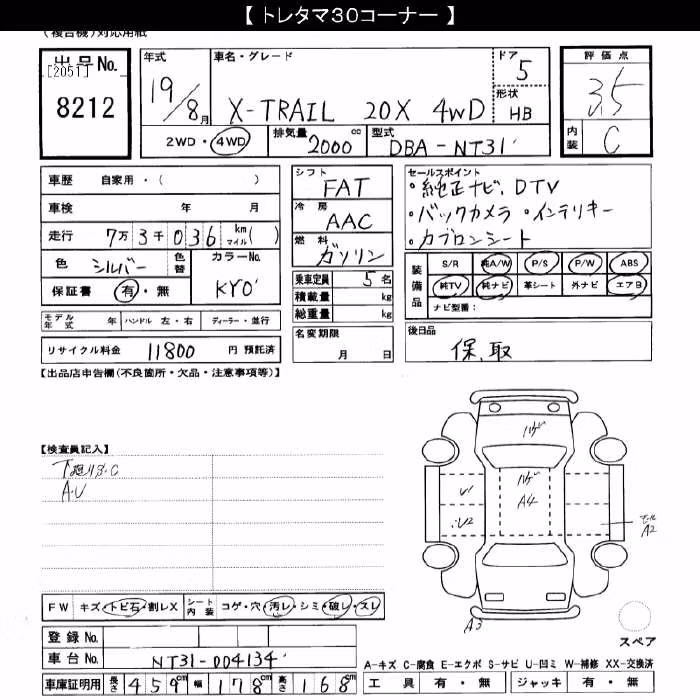 【 トレタマ30コーナー 】
(複合機)対応用紙
出品No.
[2051]
8212
年式
19/8月
車名・グレード
X-TRAIL 20X 4WD
ドア 5
形状 HB
評価点
3.5
内装 C
2WD・4WD
排気量 2000 cc
型式 DBA-NT31
車歴 自家用・( )
車検 年 月
走行 7万3千036 km マイル( )
色 シルバー 色替
カラーNo. KY0
保証書 有・無
シフト FAT
冷房 AAC
燃料 ガソリン
乗車定員 5名
積載量 kg
総重量 kg
セールスポイント
・純正ナビ、DTV
・バックカメラ・インテリキー
・カブロンシート
装備品
S/R 純A/W P/S P/W ABS
純TV 純ナビ 革シート 外ナビ エアB
ナビ型番:
モデル年式 年 ハンドル 左・右 ディーラー・並行
名変期限
月 日
後日品
保、取
リサイクル料金 11800 円 預託済
【出品店申告欄(不良箇所・欠品・注意事項等)】
【検査員記入】
A.U
ハゲ
ハゲ
A4
U1
U2
A2
A3
スペア
FW キズ・トビ石・割レX シート内装 コゲ・穴・汚レ・シミ・破レ・スレ
登録No.
車台No. NT31-004134
車庫証明用 長さ 459cm 幅 178cm 高さ 168cm
A-キズ C-腐食 E-エクボ S-サビ U-凹ミ W-補修 XX-交換済
工具 有・無 ジャッキ 有・無